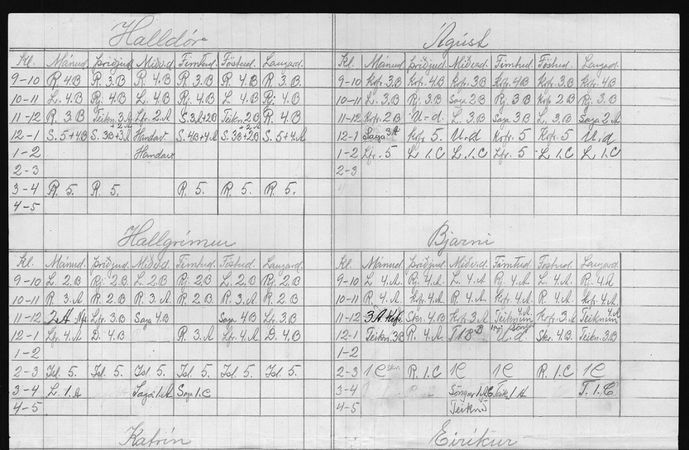 Halldór
Kl. Mánud. Þriðjud. Miðvd. Fimtud. Föstud. Laugad.
9-10 R. 4.B R. 3.B R. 4.B R. 3.B R. 4.B R. 3.B
10-11 L. 4.B R. 4.B L. 4.B R. 4.B L. 4.B R. 4.B
11-12 R. 3.B Teikn. 3.A Lfr. 2.A S. 3.A+2.B Teikn 2.B R. 4.B
12-1 S. 5+4B S. 3B+3A Handav S. 4B+4.A S. 3B+2B S. 5+4.A
1-2 Handav
2-3
3-4 R. 5. R. 5. R. 5. R. 5. R. 5.
4-5
Ágúst
Kl. Mánud. Þriðjud. Miðvd. Fimtud. Föstud. Laugad.
9-10 Hofr. 3.B Hofr. 4.B Hofr. 3.B Hofr. 4.B Hofr. 3.B Hofr. 4.B
10-11 L. 3.B R. 3.B Saga 2.B R. 3.B Hofr. 2.B R. 3.B
11-12 Hofr. 2.B U-d L. 3.B Saga 3.B L. 3.B Saga 2.A
12-1 Saga 3.A Hofr. 5. U.d Hofr. 5. Hofr. 5. U.d
1-2 Lfr. 5 L. 1.C L. 1.C Lfr. 5 L. 1.C L. 1.C
2-3
Hallgrímur
Kl. Mánud. Þriðjud. Miðvd. Fimtud. Föstud. Laugad.
9-10 L. 2.B R. 2.B L. 2.B R. 2.B L. 2.B R. 2.B
10-11 R. 3.A R. 2.B R. 3.A R. 2.B R. 3.A R. 2.B
11-12 Lfr. 3.B Saga 4.B Saga 4.B Lfr. 3.B
12-1 Lfr. 4.A D. 4.B R. 3.A Lfr. 4.A D. 4.B
1-2
2-3 Ísl. 5. Ísl. 5. Ísl. 5. Ísl. 5. Ísl. 5. Ísl. 5.
3-4 L. 1.A Saga 1.A Saga 1.C
4-5
Bjarni
Kl. Mánud. Þriðjud. Miðvd. Fimtud. Föstud. Laugad.
9-10 L. 4.A R. 4.A L. 4.A R. 4.A L. 4.A R. 4.A
10-11 R. 4.A Hofr. 4.A R. 4.A Hofr. 4.A R. 4.A Hofr. 4.A
11-12 3.A Skr. 4.B Hofr. 3.A Teiknun 4.A Hofr. 3.A Teiknun 4.A
12-1 Teikn. 3.B R. 4.A U.d Skr. 4.B Teikn. 3.B
1-2
2-3 1C R. 1.C 1C 1C R. 1.C 1C
3-4 Söngur 1.A 1.A T. 1.C
4-5 Teiknd
Katrín
Eiríkur